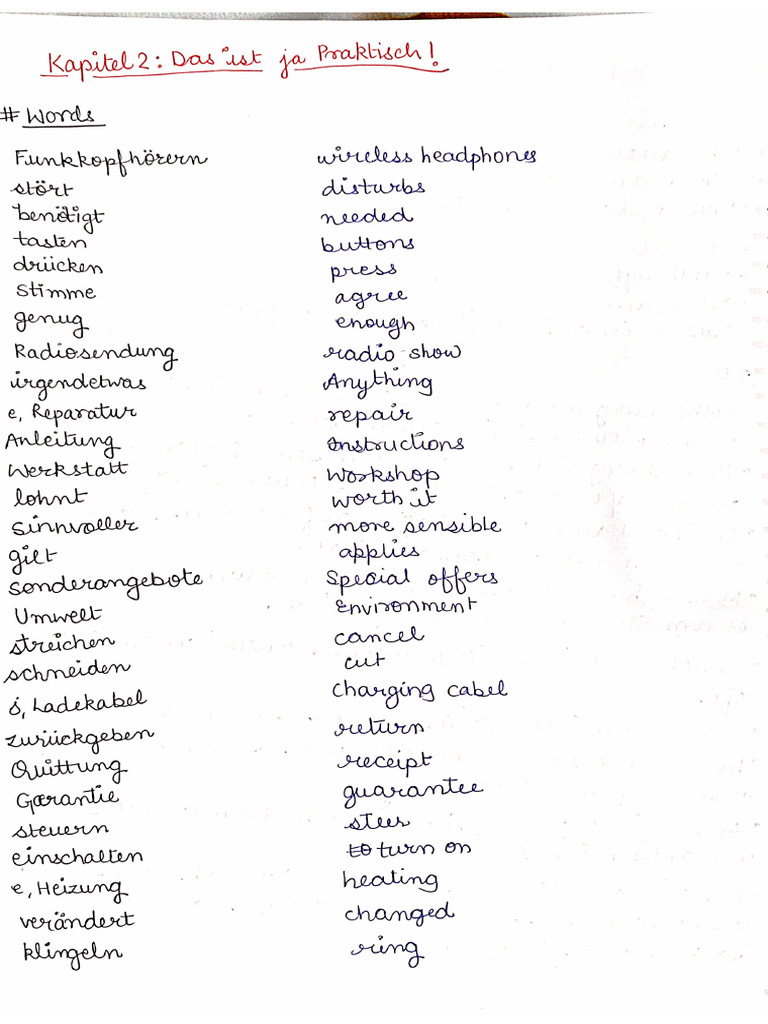 Kapitel 2: Das ist ja Praktisch!
# Words
Funkkopfhörern wireless headphones
stört disturbs
benötigt needed
tasten buttons
drücken press
Stimme agree
genug enough
Radiosendung radio show
irgendetwas Anything
e, Reparatur repair
Anleitung Instructions
Werkstatt Workshop
lohnt worth it
Sinnvoller more sensible
gilt applies
Sonderangebote Special offers
Umwelt Environment
streichen cancel
schneiden cut
s, Ladekabel Charging cabel
zurückgeben return
Quittung receipt
Garantie guarantee
steuern steer
einschalten to turn on
e, Heizung heating
verändert changed
klingeln ring